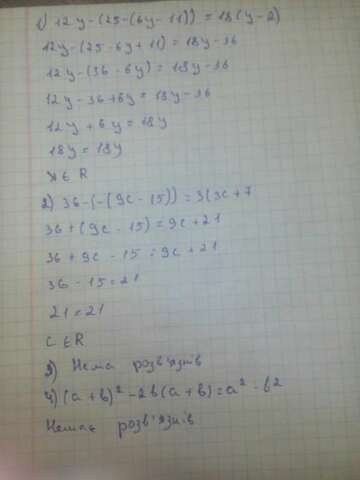 1) 12y-(25-(6y-11)) = 18(y-2)
12y-(25-6y+11) = 18y-36
12y-(36-6y) = 18y-36
12y-36+6y = 18y-36
12y+6y = 18y
18y = 18y
y ∈ R
2) 36-(-(9c-15)) = 3(3c+7
36+(9c-15) = 9c+21
36+9c-15 = 9c+21
36-15=21
21=21
c ∈ R
3) Нема розв'язків
4) (a+b)²-2b(a+b)=a²-b²
Немає розв'язків